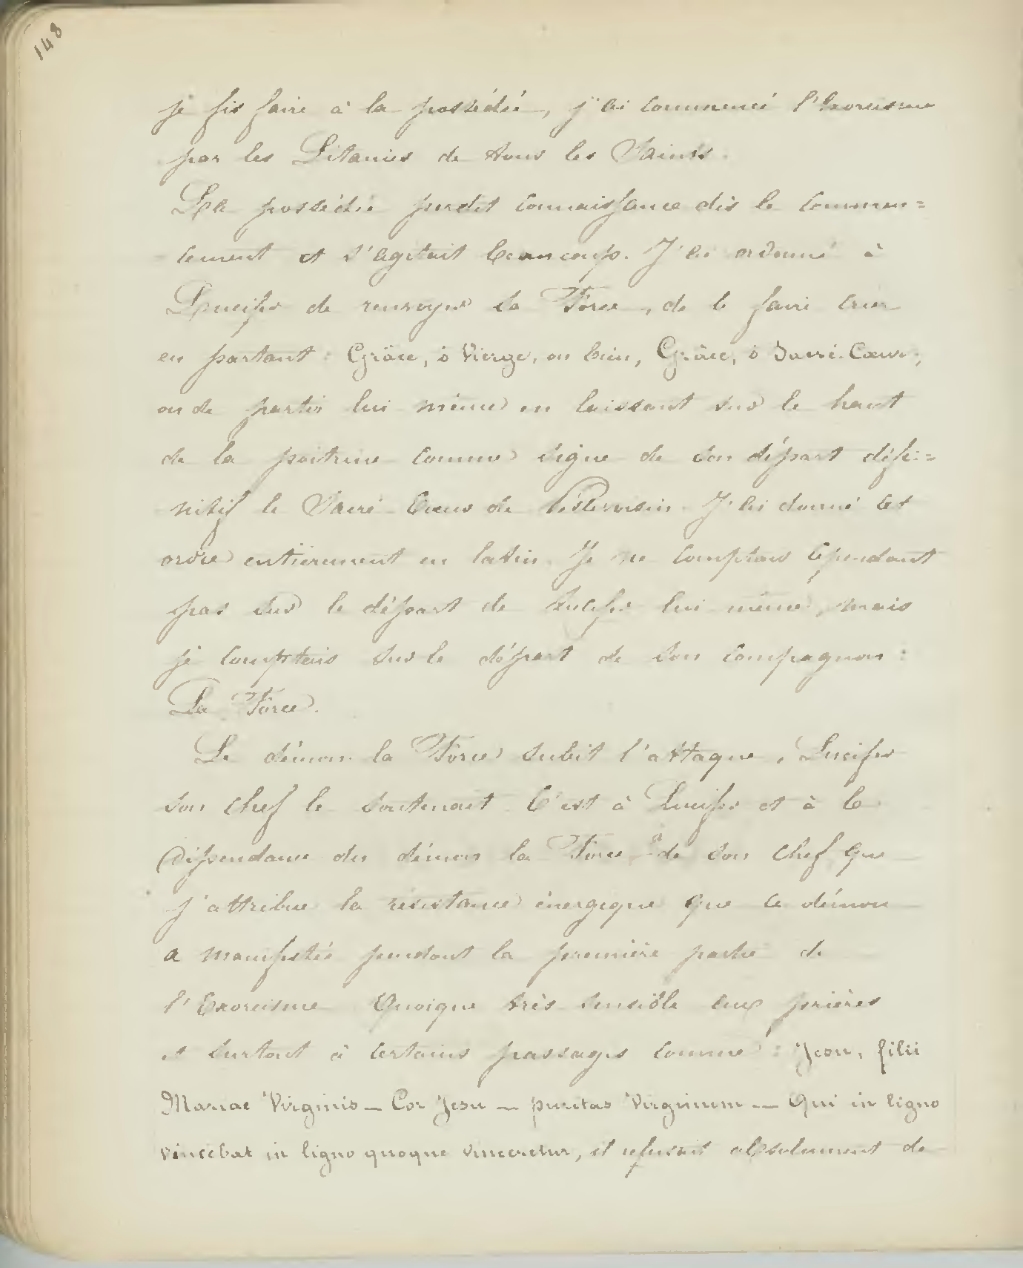 148
je fis faire à la possédée, j'ai commencé l'Exorcisme
par les Litanies de tous les Saints.
La possédée perdit connaissance dès le commen=
cement et s'agitait beaucoup. J'ai ordonné à
Lucifer de renvoyer la Force, de le faire crier
en partant : Grâce, ô Vierge, ou bien, Grâce, ô Sacré-Cœur,
ou de partir lui même en laissant sur le haut
de la poitrine comme signe de son départ défi=
nitif le Sacré-Cœur de Pellevoisin. J'ai donné cet
ordre entièrement en latin. Je ne comptais cependant
pas sur le départ de Lucifer lui-même, mais
je comptais sur le départ de son compagnon :
La Force.
Le démon la Force subit l'attaque, Lucifer
son chef le soutenait. C'est à Lucifer et à la
Dépendance du démon la Force à de son chef que
j'attribue la résistance énergique que ce démon
a manifestée pendant la première partie de
l'Exorcisme. Quoique très sensible aux prières
et surtout à certains passages comme : Jesu, filii
Mariae Virginis — Cor Jesu — puritas Virginum — Qui in ligno
vincebat in ligno quoque vinceretur, il refusait absolument de